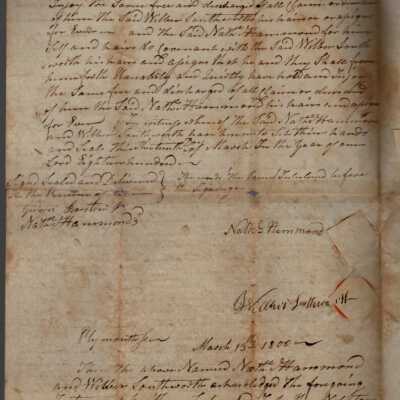 Enjoy the Same free and discharg of all Claim or demand
of him the Said Wilber Southworth his hairs or asigns
for Ever and the Said Nathl Hammond for him
Self and hairs do Covenant with the Said Wilber South
worth his hairs and asigns that he and they Shall from
hence forth Peaceably and Quietly have hold and Injoy
the Same free and discharged of all Claim or demand
of him the Said Nathl Hammond his hairs and asigns
for Ever In witness whereof the Said Nathl Hammond
and Wilber Southworth have hereunto Set their hands
and Seals this thirteenth of March In the year of our
Lord Eighteen hundred
Signed Sealed and Delivered
In the Presence of us
the word the
before
Nathl Hammond
Nathl Hammond
Wilber Southworth
Plymouth ss March 13th 1800
Then the above Named Nathl Hammond
and Wilber Southworth acknoledged the foregoing